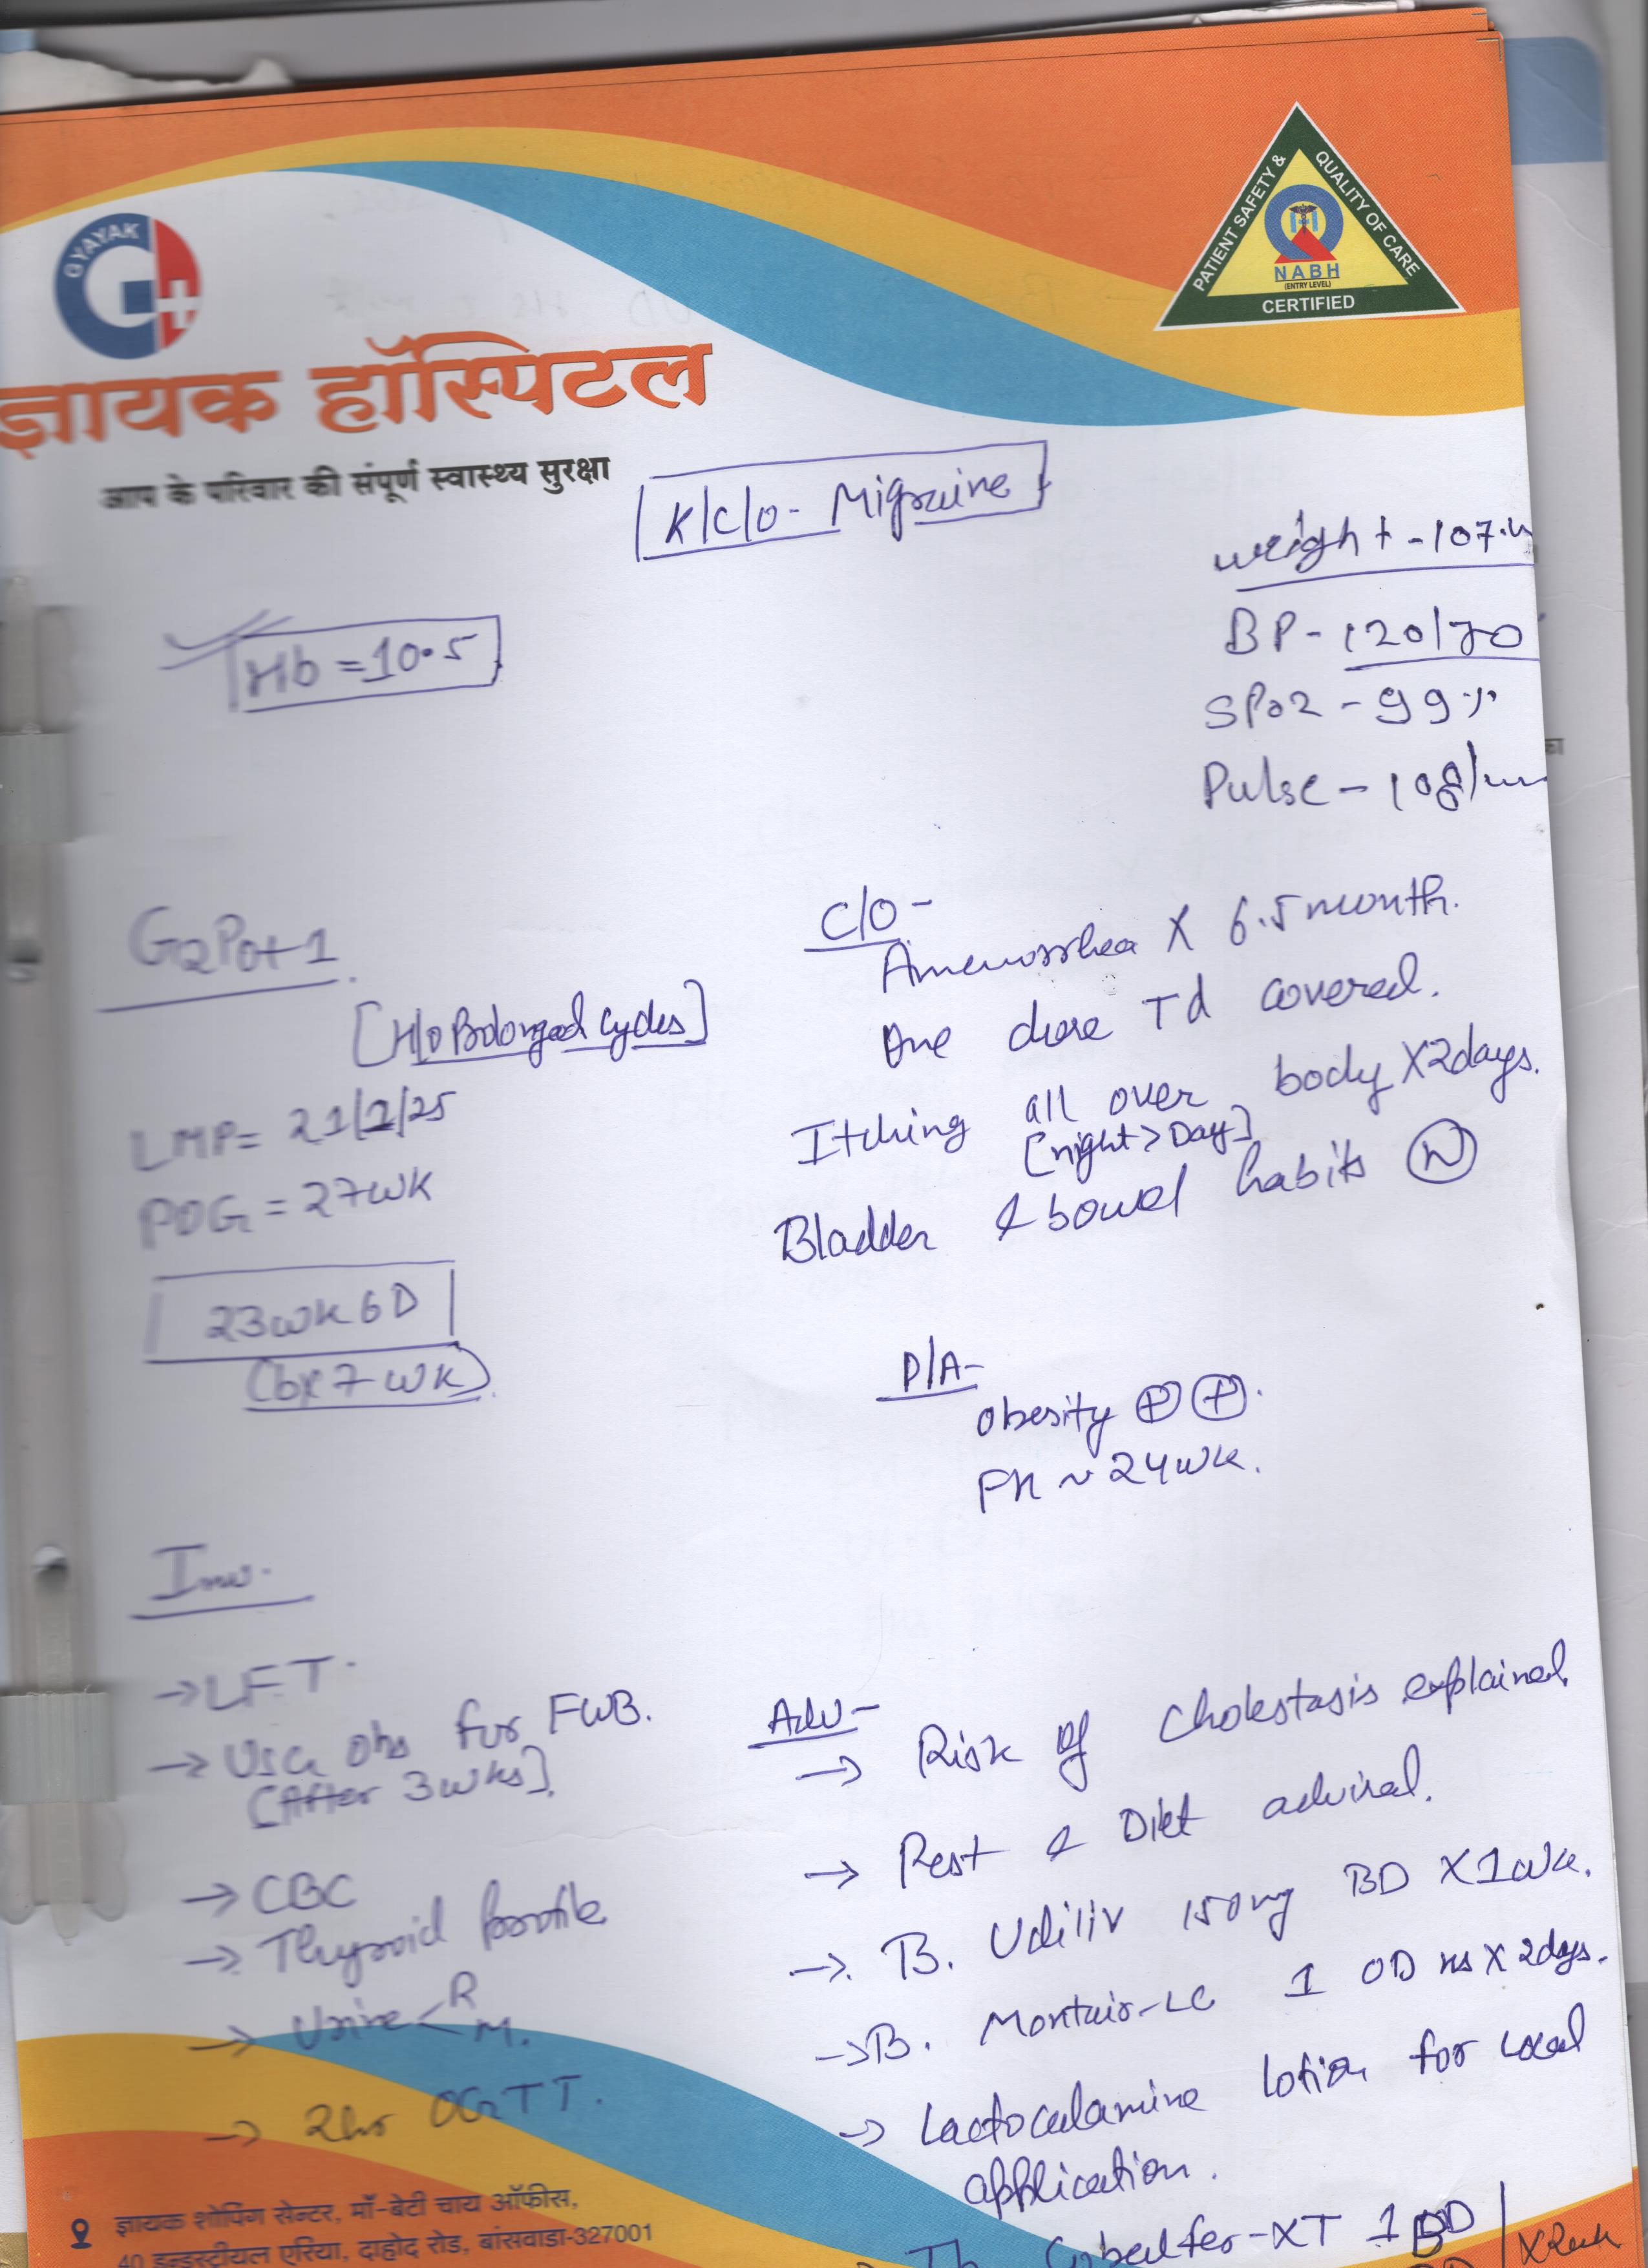 GYAYAK
PATIENT SAFETY & QUALITY OF CARE
NABH
(ENTRY LEVEL)
CERTIFIED
ज्ञायक हॉस्पिटल
आप के परिवार की संपूर्ण स्वास्थ्य सुरक्षा
K/C/O- Migraine
weight - 107
BP - 120/70
SPO2 - 99%
Pulse - 108/m
Hb = 10.5
G2P0+1
[H/O Prolonged cycles]
LMP = 21/2/25
POG = 27wk
23wk 6D
(by 7 wk)
C/O -
Amenorrhea X 6.5 month.
One dose Td covered.
Itching all over body X2days.
[night > Day]
Bladder & bowel habits (N)
P/A-
obesity (+) (+).
FH ~ 24wk.
Inv.
→ LFT.
→ USG obs for FWB.
[After 3wks].
→ CBC
→ Thyroid profile
→ Urine < R
M.
→ 2hr OGTT.
Adv-
→ Risk of cholestasis explained
→ Rest & Diet advised.
→ B. Udiliv 150mg BD X 1wk.
→ B. Montair-LC 1 OD HS X 2days.
→ Lactocalamine lotion for local
application.
-XT 1
ज्ञायक शोपिंग सेन्टर, माँ-बेटी चाय ऑफीस,
40 इन्डस्ट्रीयल एरिया, दाहोद रोड, बांसवाडा-327001